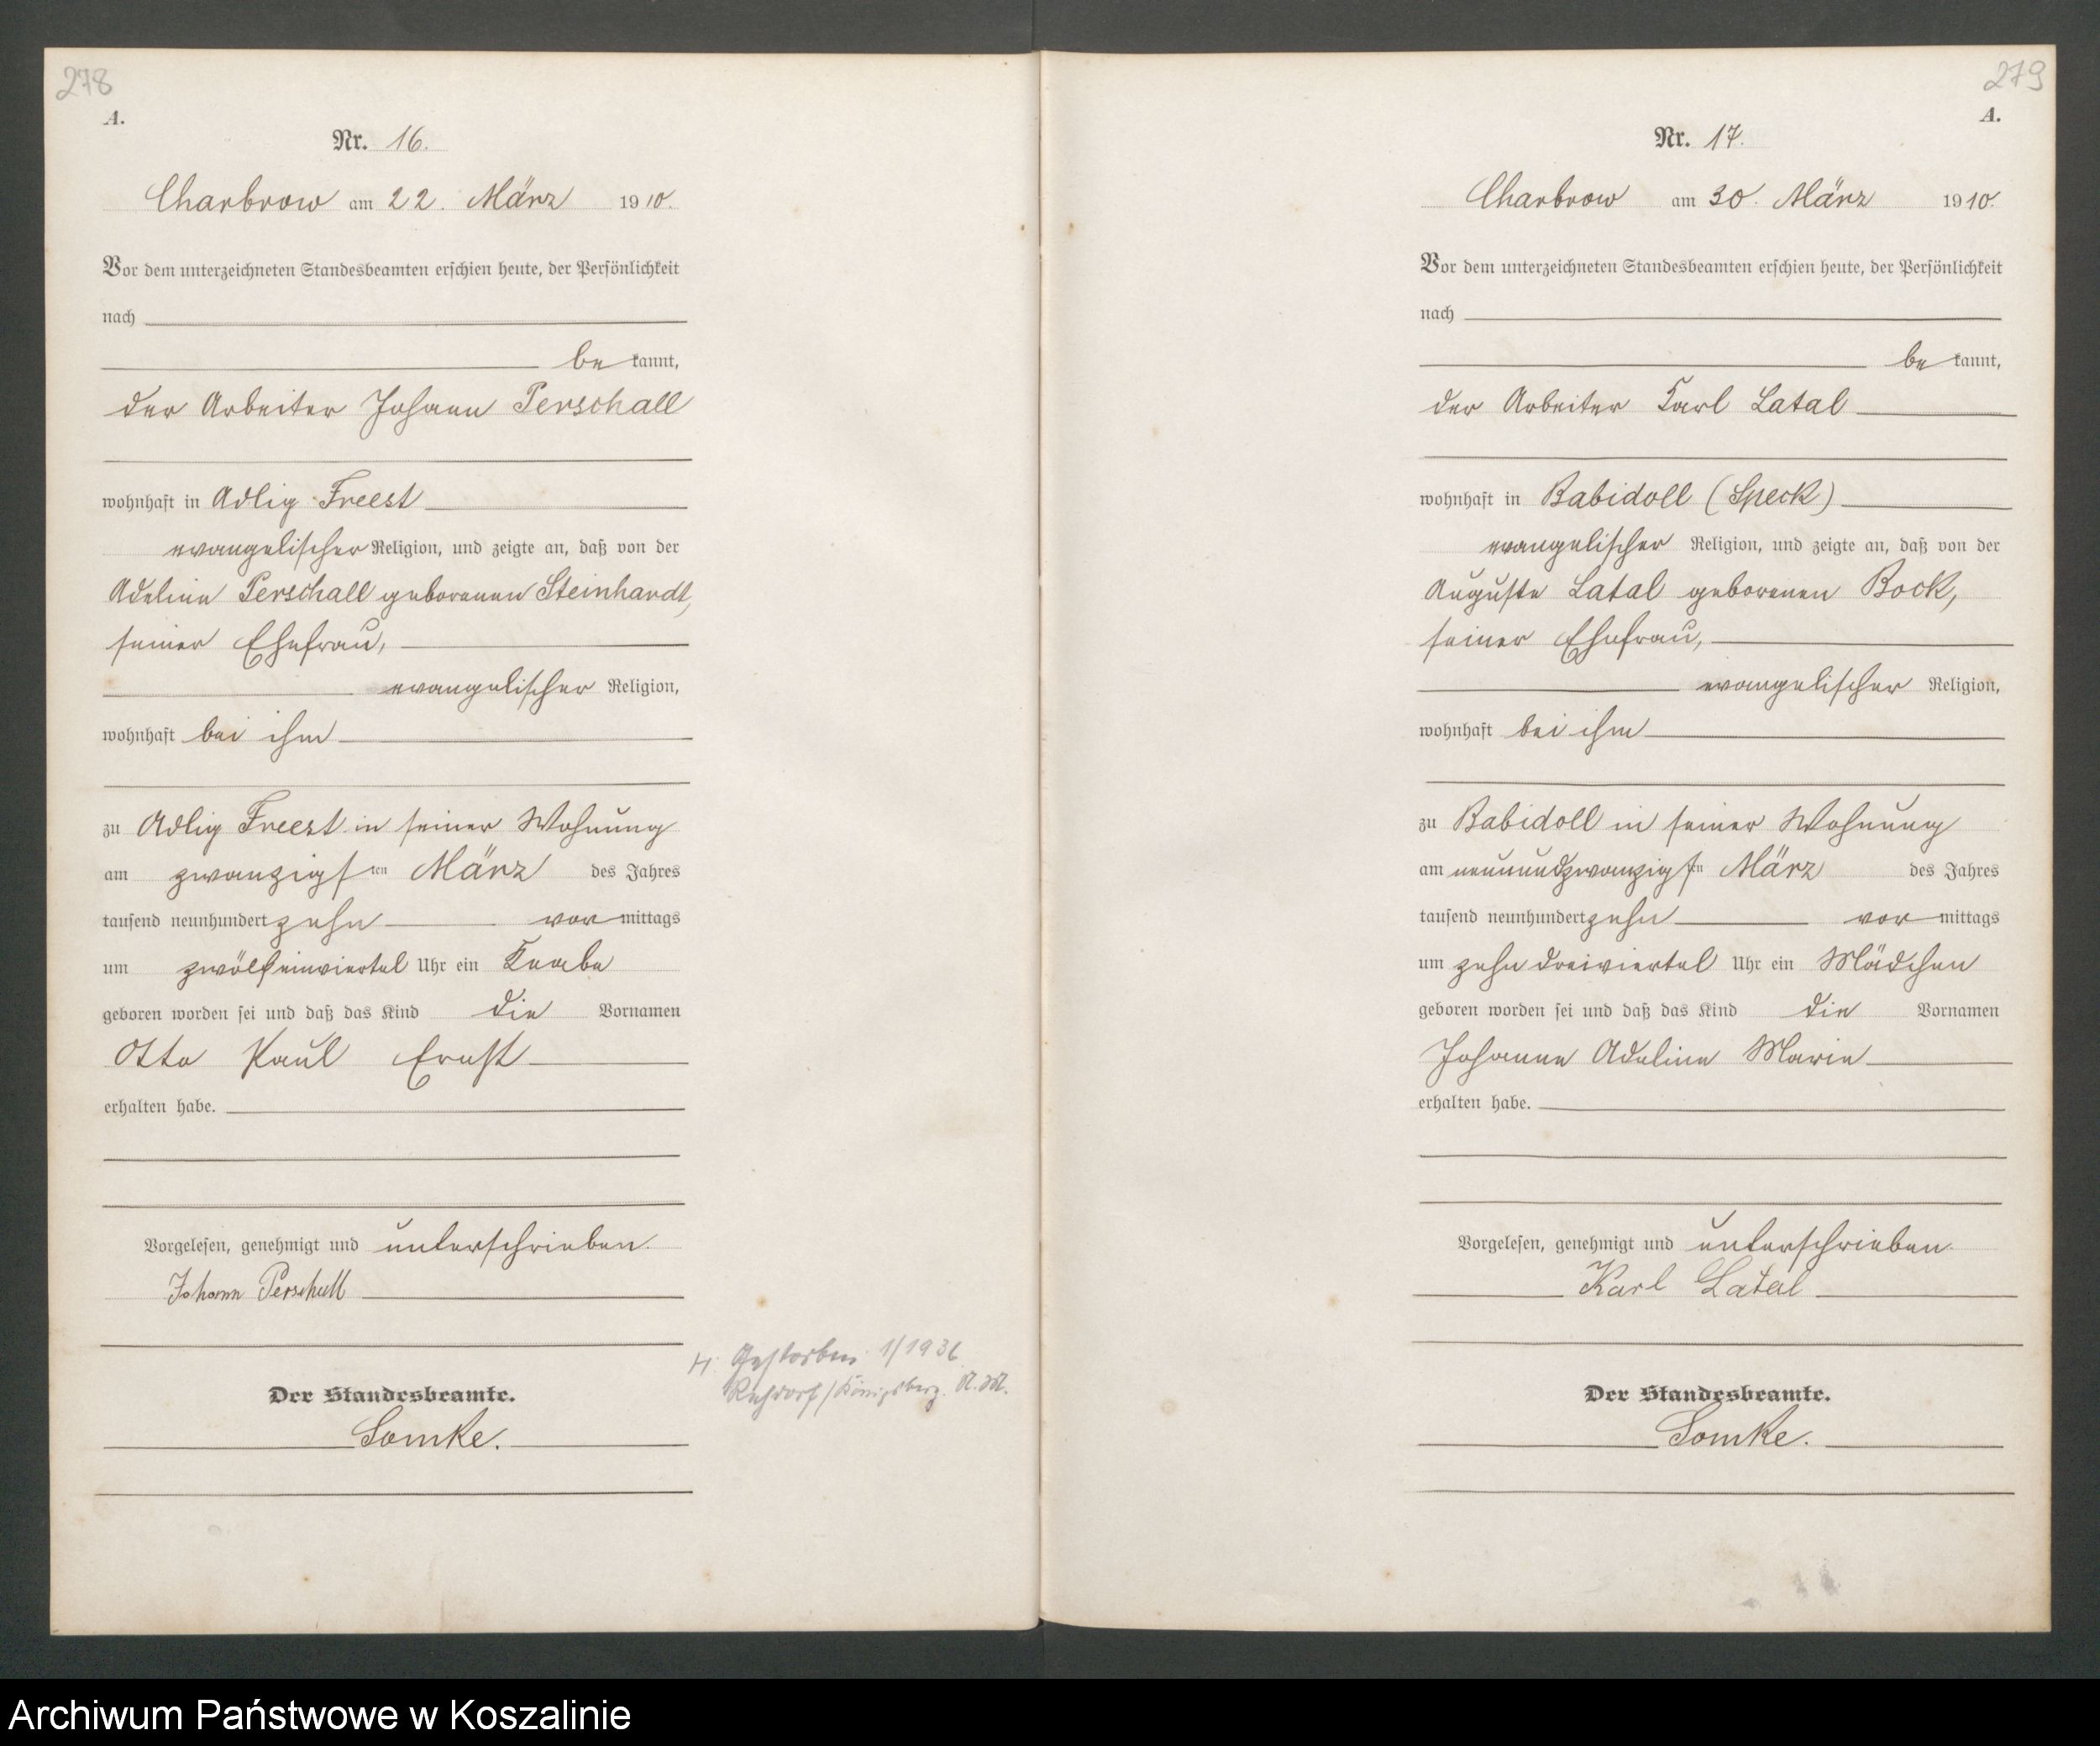 278
A.
Nr. 16.
Charbrow am 22. März 1910.
Vor dem unterzeichneten Standesbeamten erschien heute, der Persönlichkeit
nach
bekannt,
der Arbeiter Johann Perschall
wohnhaft in Adlig Freest
evangelischer Religion, und zeigte an, daß von der
Adeline Perschall geborenen Steinhardt,
seiner Ehefrau,
evangelischer Religion,
wohnhaft bei ihm
zu Adlig Freest in seiner Wohnung
am zwanzigsten März des Jahres
tausend neunhundert zehn vormittags
um zwölfeinviertel Uhr ein Knabe
geboren worden sei und daß das Kind die Vornamen
Otto Paul Ernst
erhalten habe.
Vorgelesen, genehmigt und unterschrieben.
Johann Perschall
H. Gestorben 1/1936
/Königsberg. N.M.
Der Standesbeamte.
Lomke.
279
A.
Nr. 17.
Charbrow am 30. März 1910.
Vor dem unterzeichneten Standesbeamten erschien heute, der Persönlichkeit
nach
bekannt,
der Arbeiter Karl Latal
wohnhaft in Babidoll (Speck)
evangelischer Religion, und zeigte an, daß von der
Auguste Latal geborenen Bock,
seiner Ehefrau,
evangelischer Religion,
wohnhaft bei ihm
zu Babidoll in seiner Wohnung
am neunundzwanzigsten März des Jahres
tausend neunhundert zehn vormittags
um zehn dreiviertel Uhr ein Mädchen
geboren worden sei und daß das Kind die Vornamen
Johanne Adeline Marie
erhalten habe.
Vorgelesen, genehmigt und unterschrieben.
Karl Latal
Der Standesbeamte.
Lomke.
Archiwum Państwowe w Koszalinie